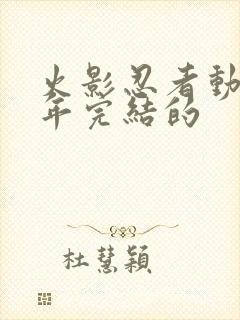 火影忍者動
年完結的
杜慧穎